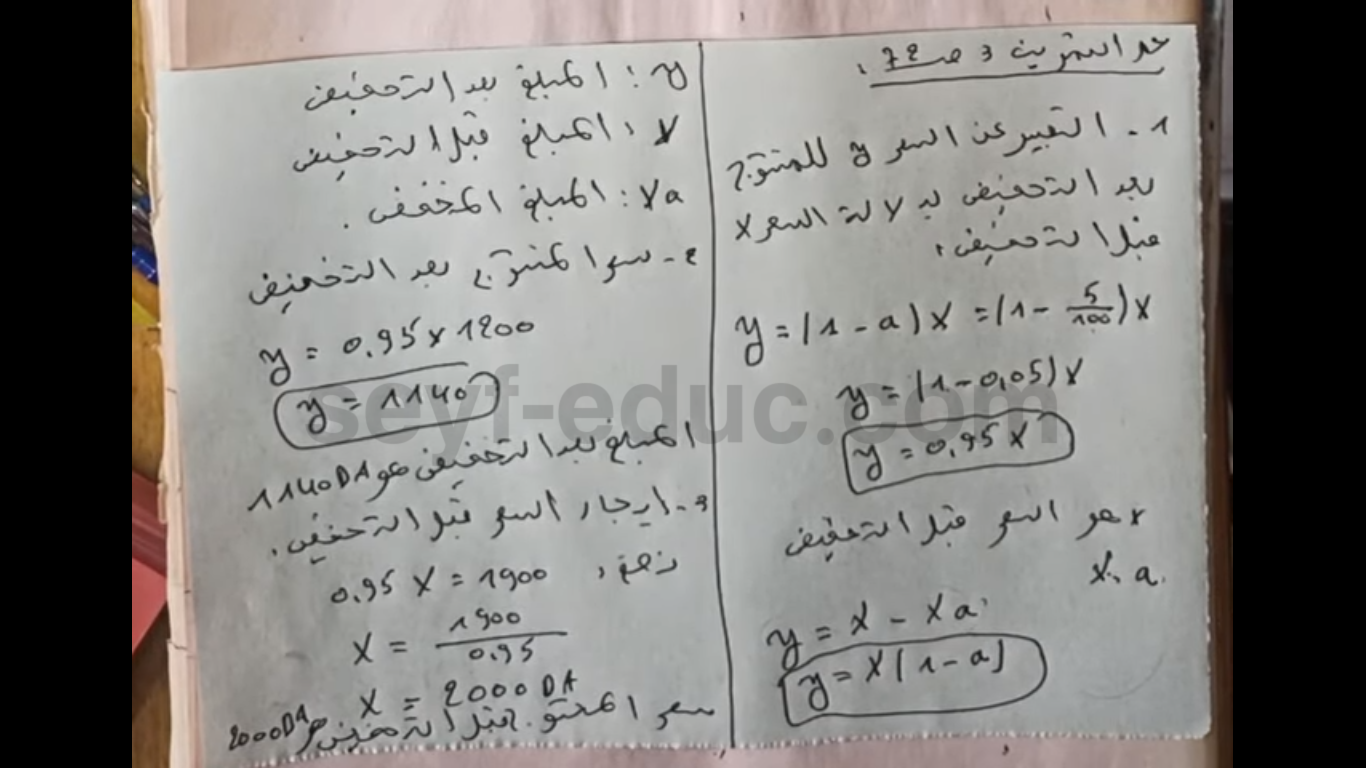 حل التمرين 3 ص 72.
1- التعبير عن السعر y للمنتوج
بعد التخفيض بدلالة السعر x
قبل التخفيض:
y = (1 - a) x = (1 - 5/100) x
y = (1 - 0,05) x
y = 0,95 x
x هو السعر قبل التخفيض
x. a.
y = x - xa
y = x (1 - a)
y: المبلغ بعد التخفيض
x: المبلغ قبل التخفيض
xa: المبلغ المخفض.
2- سعر المنتوج بعد التخفيض
y = 0.95 x 1200
y = 1140
المبلغ بعد التخفيض هو 1140DA
3- ايجار السعر قبل التخفيض.
0.95 x = 1900
x = 1900/0.95
x = 2000 DA
سعر المنتوج قبل التخفيض هو 2000DA
seyf-educ.com